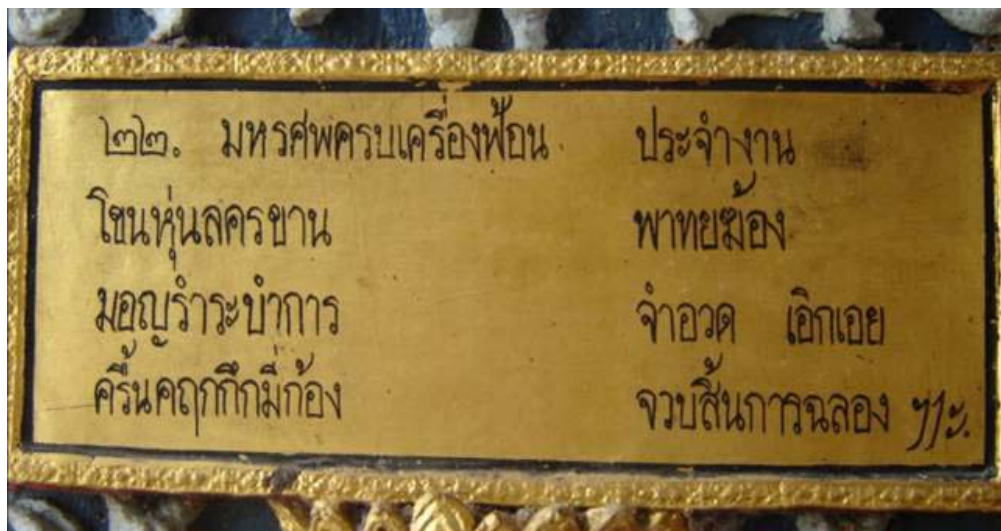 ๒๒. มหรศพครบเครื่องฟ้อน ประจำงาน
โขนหุ่นลครขาน พาทยฆ้อง
มอญรำระบำการ จำอวด เอิกเอย
ครื้นคฤกกึกมี่ก้อง จวบสิ้นการฉลอง ๚ะ.